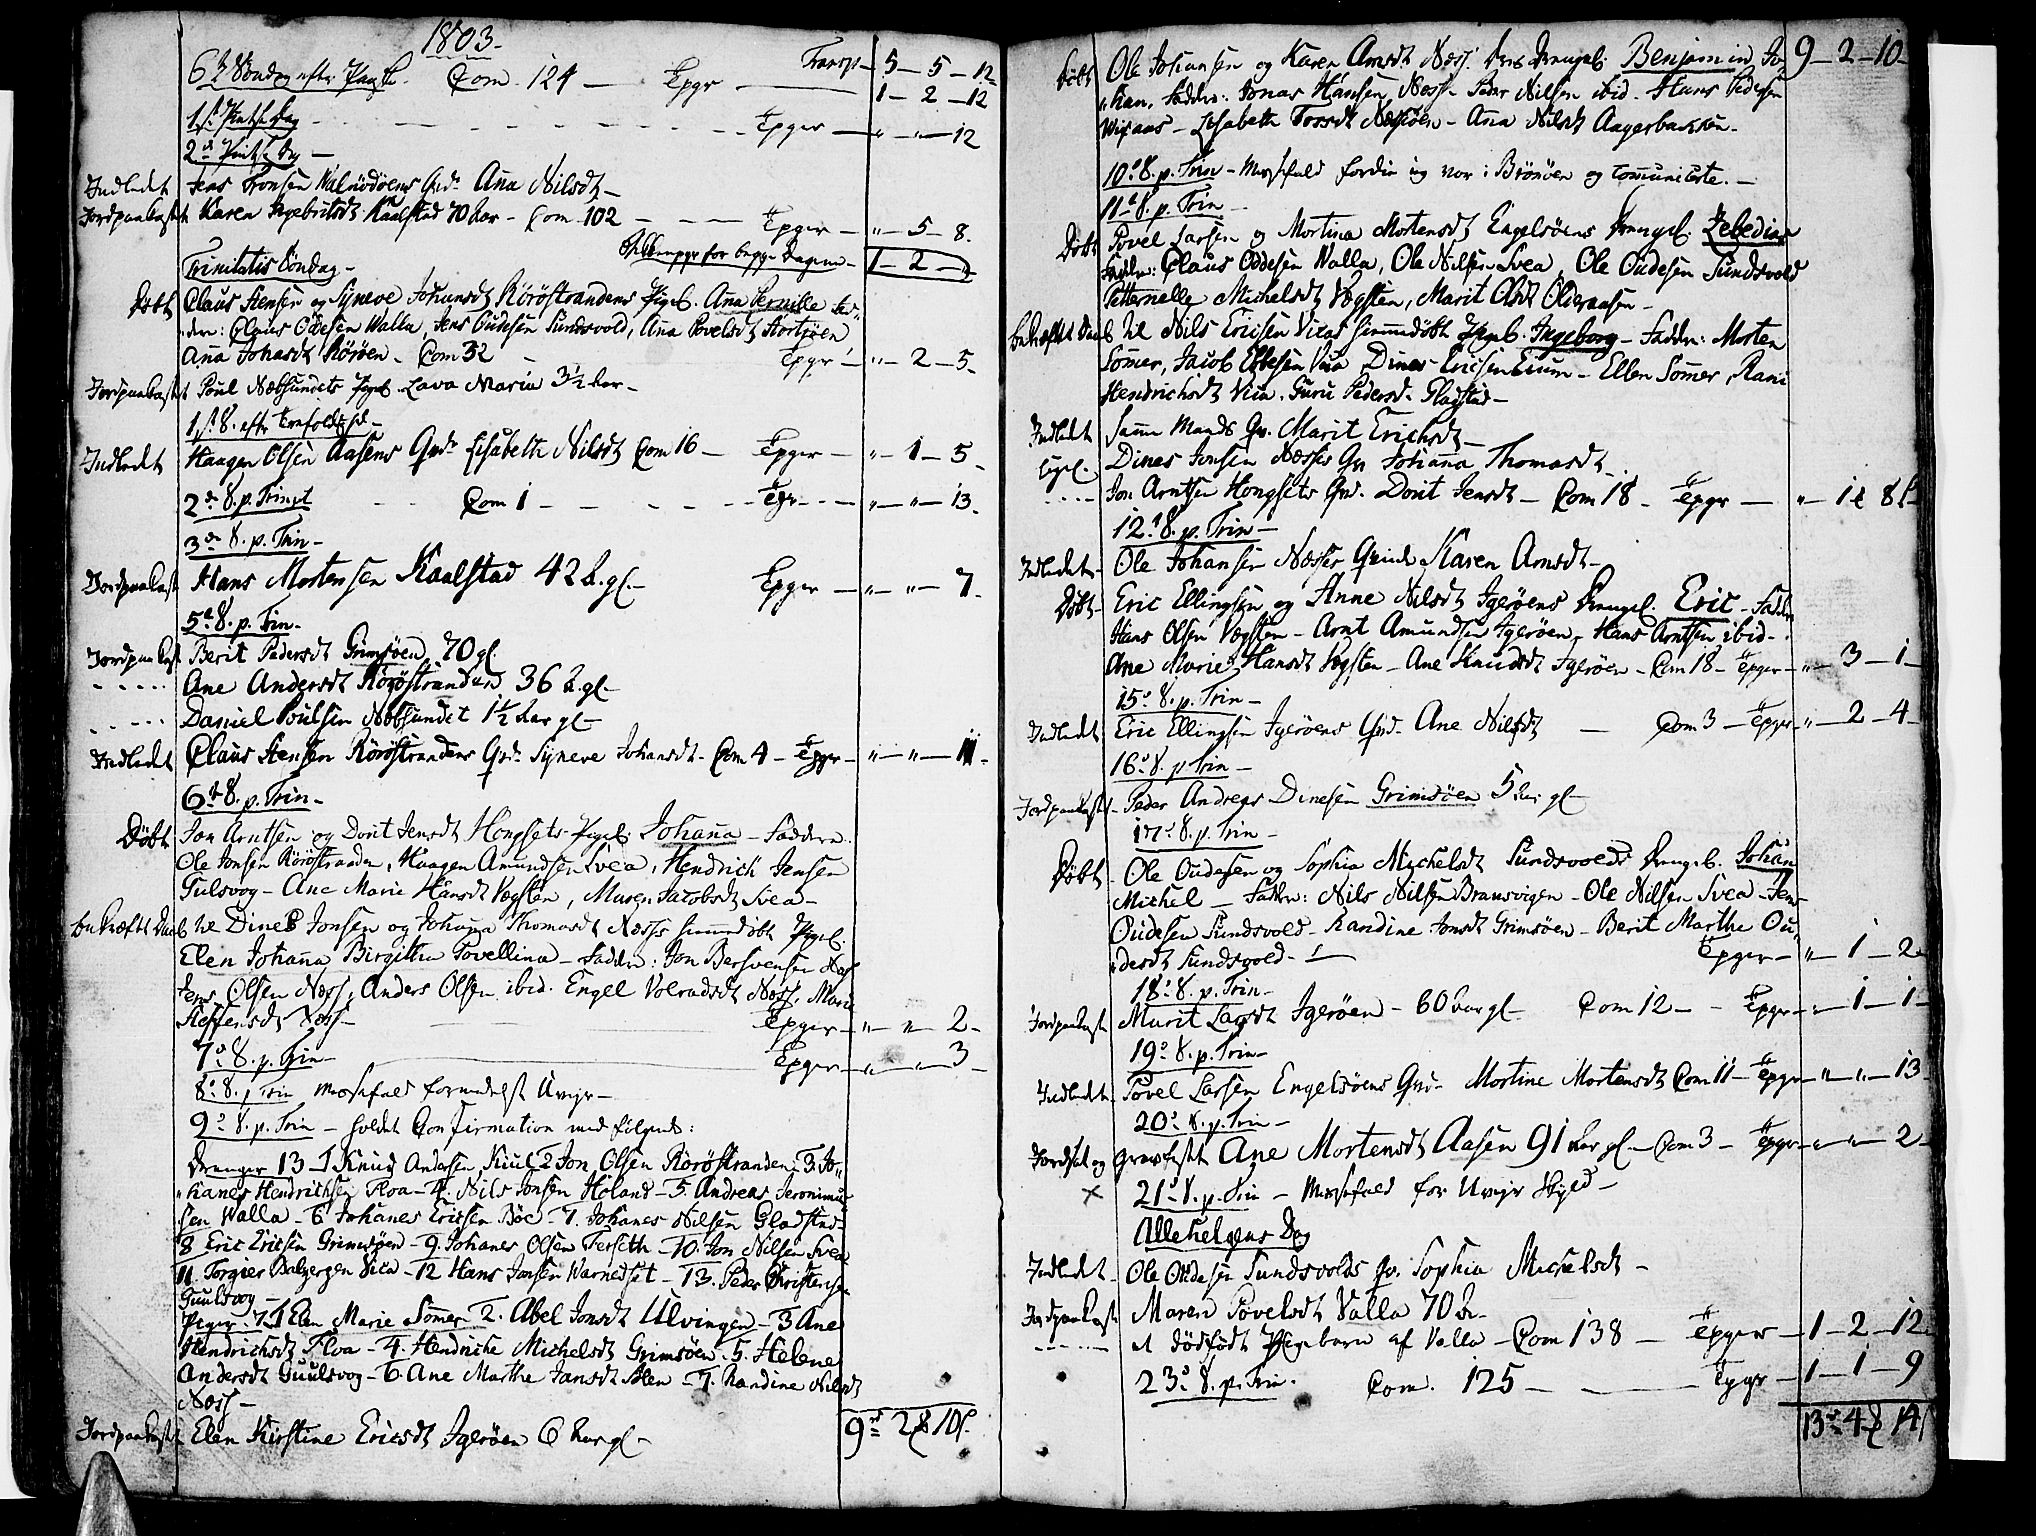 1803.
6te Søndag efter Paaske. Com. 124 — Tpgr — Transp — 5 — 5 — 12
1 — 2 — 12
1ste Pintse Dag — Tpger — „ — „ — 12
2den Pintse Dag —
Indledet Jens Tronsen Qvd. Ana Nilsdt —
Jordpaakastet Karen Ingebritsdt Kaalstad 70 Aar — Com. 102 — Tpger — „ — 5 — 8.
for begge Dagene — 1 — 2 — „
Trinitatis Søndag —
Døbt Claus Stensen og Syneve Johansdt Röröstrandens Pigeb. Ana Pernille Fad-
dere: Claus Odesen Walla, Jens Oudesen Sundsvold, Ana Povelsdt Stortjøen
Ana Johansdt Rörøen — Com 32 Tpgr — „ — 2 — 5.
Jordpaakastet Poul Næbsundets Pigeb. Lava Maria 3½ Aar —
1ste S. efter Trefoldighed —
Indledet Haagen Olsen Aasens Qvd. Lisabeth Nilsdt Com 16 — Tpger — „ — 1 — 5.
2den S. p. Trinit Com 1 — Tpgr — „ — „ — 13.
3de S. p. Trin —
Jordpaakast Hans Mortensen Kaalstad 42 A. gl. — Tpger — „ — „ — 7.
5te S. p. Trin —
Jordpaakast Berit Pedersdt Grimsøen 70 gl.
Ane Andersdt Rörøstranden 36 A. gl —
Daniel Poulsen Næbsundet 1½ Aar gl —
Indledet Claus Stensen Rörøstrandens Qvd. Syneve Johansdt — Com 4 — Tpgr — „ — „ — 11.
6te S. p. Trin —
Døbt Jon Arntsen og Dorit Jensdt Hongsets Pigeb. Johana — Faddere
Ole Jonsen Rörøstranden, Haagen Amundsen Svea, Hendrich Jensen
Gulsvog — Ane Marie Hansdt Vægsten, Maren Jacobsdt Svea —
bekræftet Daab til Dines Jonsen og Johana Thomasdt Næsses hiemedøbt Pigeb.
Elen Johana Birgitha Povellina — Faddere: Jon Bersvensen
Jens Olsen Næss, Anders Olsen ibid. Engel Volradsdt Næss, Marie
Steffensdt Næss — Tpger — „ — „ — 2 —
7de S. p. Trin — Tpger — „ — „ — 3 —
8de S. p. Trin Messefald formedelst Uvejr —
9de S. p. Trin — holdet Confirmation med følgende:
Drenger 13 — 1 Knud Andersen 2 Jon Olsen Rörøstranden 3 Jo-
hanes Hendrichsen Floa — 4. Nils Jonsen Høland — 5. Andreas Jeronimus-
sen Walla — 6 Johanes Ericsen Bøe — 7. Johanes Nilsen Gladstad —
8 Eric Ericsen Grimsøen — 9. Johanes Olsen Ferseth — 10. Jon Nilsen Svea
11. Torgier Balzersen Viea — 12 Hans Jonsen Warnedset — 13. Peder Christensen
Guulsvog —
Piger. 7. 1 Elen Marie Somer 2. Abel Jonsdt Ulvingen — 3 Ane
Hendrichsdt Floa — 4. Hendriche Michelsdt Grimsøen. 5. Helene
Andersdt Guulsvog — 6. Ane Marthe Jansdt — 7. Randine Nilsdt
Næss —
Jordpaakast Elen Kirstine Ericsdt Igerøen 6 Aar gl —
9rd 2 10
Døbt Ole Johansen og Karen Arnsdt Næss. Drengeb. Benjamin Jo- 9 — 2 — 10
han. Faddere: Jonas Hansen Næss. Peder Nilsen ibid. Hans Pedersen
Lisabeth Næssøen — Ana Nilsdt Aagerbakken —
10de S. p. Trin — Messefald fordi jeg var i Brønøen og comunicerte. —
11te S. p. Trin —
Døbt Povel Larsen og Mortina Mortensdt Engelsøens Drengeb. Zebedias
Faddere: Claus Oddesen Walla, Ole Nilsen Svea, Ole Oudesen Sundsvold
Petternelle Michelsdt Vægsten, Marit Olsdt
bekræftet Daab til Nils Ericsen Vieas hiemedøbt Pigeb. Ingeborg — Faddere: Morten
Somer, Jacob Ellesen Viea, Dines Ericsen — Ellen Somer, Rani
Hendrichsdt Viea. Guru Pedersd. Gladstad —
Indledet Same Mands Qv. Marit Erichsdt —
Ligel. Dines Jonsen Næsses Qv Johana Thomasdt
Jon Arntsen Hongsets Qvd. Dorit Jensdt — Com 18 — Tpgr — „ — 1 8
12te S. p. Trin —
Indledet Ole Johansen Næsses Qvinde Karen Arnsdt —
Døbt Eric Ellingsen og Anne Nilsdt Igerøens Drengeb. Eric — Fadder
Hans Olsen Vægsten — Arnt Amundsen Igerøen, Hans Arntsen ibid —
Ane Marie Hansdt Vægsten — Ane Knudsdt Igerøen — Com 18 — Tpger — „ — 3 — 1 —
15de S. p. Trin —
Indledet Eric Ellingsen Igerøens Qvd. Ane Nilsdt — Com 3 — Tpgr — „ — 2 — 4 —
16de S. p. Trin —
Jordpaakastet Peder Andreas Dinesen Grimsøen 5 Aar gl —
17de S. p. Trin —
Døbt Ole Oudesen og Sophia Michelsdt Sundsvolds Drengeb. Johan
Michel — Fadder: Nils Nilsen Bransvigen — Ole Nilsen Svea — Jens
Oudesen Sundsvold — Randine Jonsdt Grimsøen — Berit Marthe Ou-
desdt Sundsvold — Tpger — „ — 1 — 2
18de S. p. Trin —
Jordpaakast Marit Larsdt Igerøen — 60 Aar gl — Com 12 — Tpgr — „ — 1 — 1 —
19de S. p. Trin —
Indledet Povel Larsen Engelsøens Qvd. Mortine Mortensdt Com 11 — Tpgr — „ — „ — 13
20de S. p. Trin —
Jordsat og gravfæstet Ane Mortensdt Aasen 91 Aar gl — Com 3 — Tpgr — „ — „ — 2 —
× 21de S. p. Trin — Messefald for Uvejr Skyld —
Allehelgens Dag
Indledet Ole Oudesen Sundsvolds Qv. Sophia Michelsdt —
Jordpaakast Maren Povelsdt Valla 70 A. —
et dødfødt Pigebarn af Valla — Com 138 — Tpger — 1 — 2 — 12
23de S. p. Trin. Com. 125 — Tpgr — 1 — 1 — 9
13rd 4 14